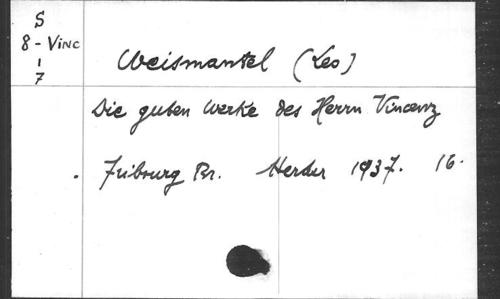 S
8 - Vinc
1
7
Weismantel (Leo)
Die guten Werke des Herrn Vincenz
Fribourg Br. Herder 1937. 16.